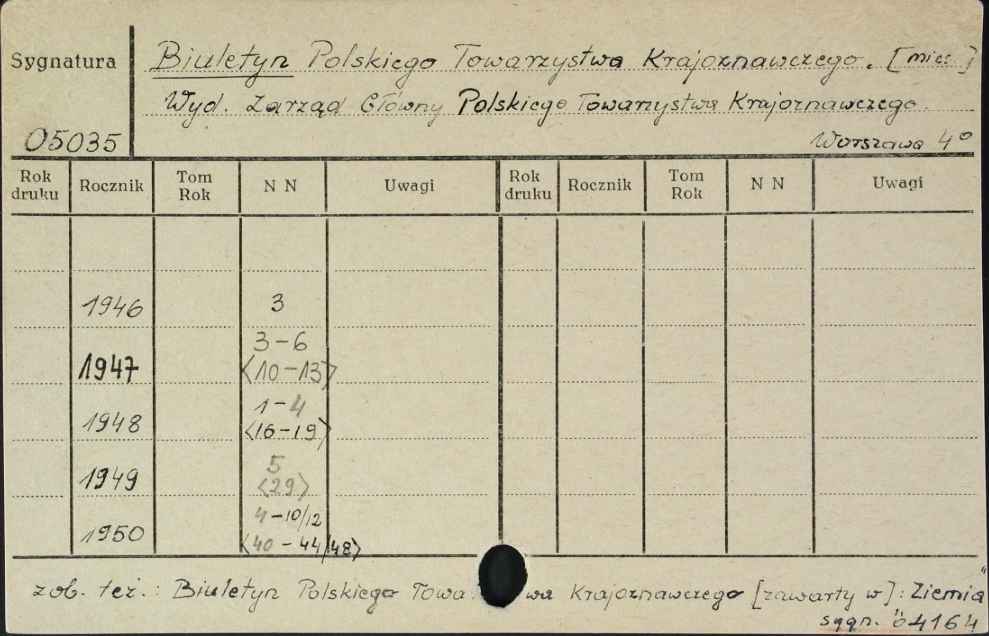 Sygnatura
Biuletyn Polskiego Towarzystwa Krajoznawczego. [mies.]
Wyd. Zarząd Główny Polskiego Towarzystwa Krajoznawczego.
05035
Warszawa 4°
Rok druku Rocznik Tom Rok N N Uwagi Rok druku Rocznik Tom Rok N N Uwagi
1946 3
1947 3-6
<10-13>
1948 1-4
<16-19>
1949 5
<29>
1950 4-10/12
<40-44/48>
zob. też.: Biuletyn Polskiego Towa wa Krajoznawczego [zawarty w]: Ziemia"
sygn. 04164